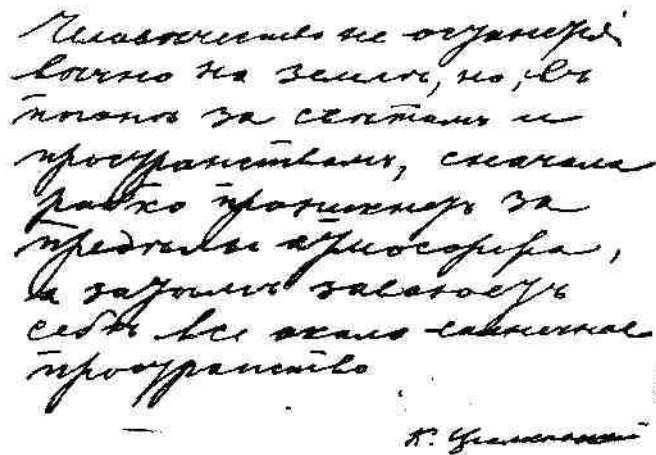 Человѣчество не останется
вѣчно на землѣ, но, въ
погонѣ за свѣтомъ и
пространствомъ, сначала
робко проникнетъ за
предѣлы атмосферы,
а затѣмъ завоюетъ
себѣ все около-солнечное
пространство
К. Циолковский